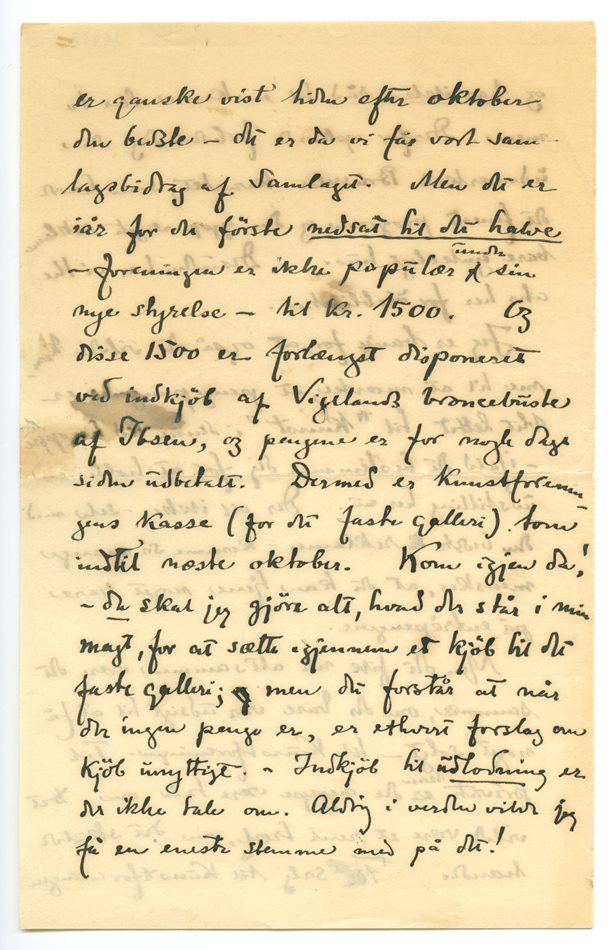 er ganske vist tiden efter oktober
den bedste – det er da vi får vort sam-
lagsbidrag af Samlaget. Men det er
iår for det förste nedsat til det halve
– foreningen er ikke populær under sin
nye styrelse – til kr. 1500. Og
disse 1500 er forlængst disponeret
ved indkjöb af Vigelands broncebüste
af Ibsen, og pengene er for nogle dage
siden üdbetalt. Dermed er Kunstforenin-
gens Kasse (for det faste galleri) tom
indtil næste oktober. Kom igjen da!
– da skal jeg gjöre alt, hvad der står i min
magt, for at sætte igjennem et kjöb til det
faste galleri; men det forstår at når
der ingen penge er, er ethvert forslag om
kjöb ünyttigt. – Indkjöb til üdlodning er
der ikke tale om. Aldrig i verden vilde jeg
få en eneste stemme med på det!